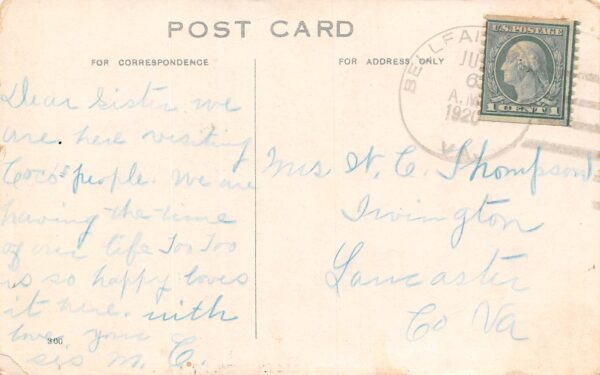 POST CARD
FOR CORRESPONDENCE
FOR ADDRESS ONLY
Dear Sister we
are here visiting
Coco's people. We are
having the time
of our life Too Too
is so happy loves
it here. with
love your
sis M. C.
300
U.S. POSTAGE
1 CENT 1
BELLFAI
JU
6
A.M.
1920
VA.
Mrs W. C. Thompson
Irvington
Lancaster
Co Va